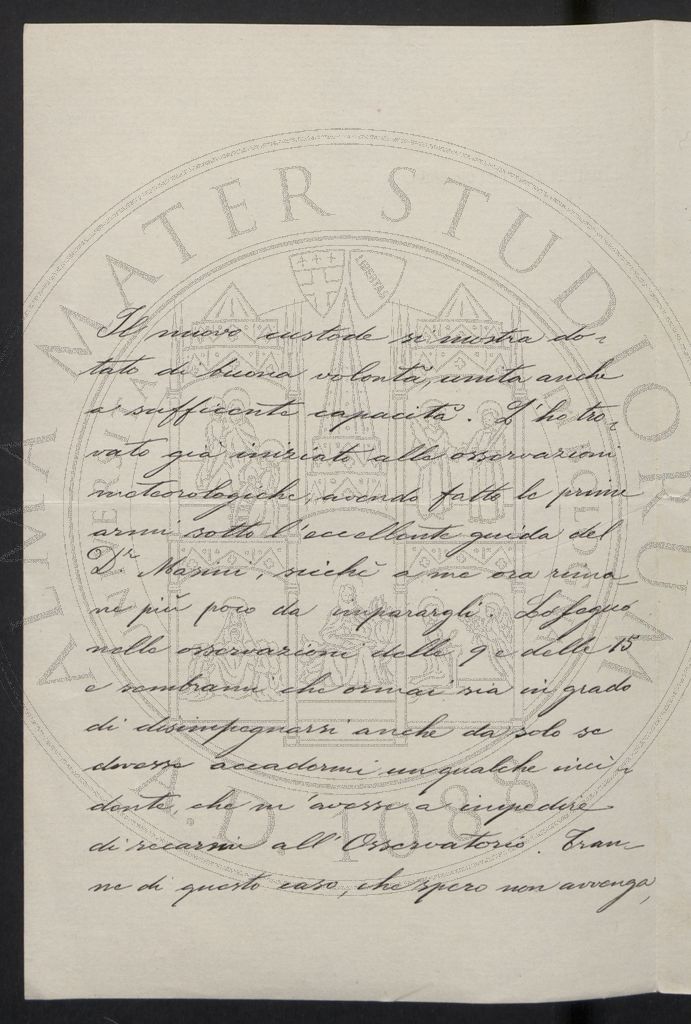 Il nuovo custode si mostra do-
tato di buona volontà, unita anche
a sufficente capacità. L'ho tro-
vato già iniziato alle osservazioni
meteorologiche, avendo fatto le prime
armi sotto l'eccellente guida del
D.r Masini, sicchè a me ora rima-
ne più poco da imparargli. Lo seguo
nelle osservazioni delle 9 e delle 15
e sembrami che ormai sia in grado
di disimpegnarsi anche da solo se
dovesse accadermi un qualche inci-
dente, che m'avesse a impedire
di recarmi all'Osservatorio. Tran-
ne di questo caso, che spero non avvenga,
ALMA MATER STUDIORUM
A.D. 1088
LIBERTAS